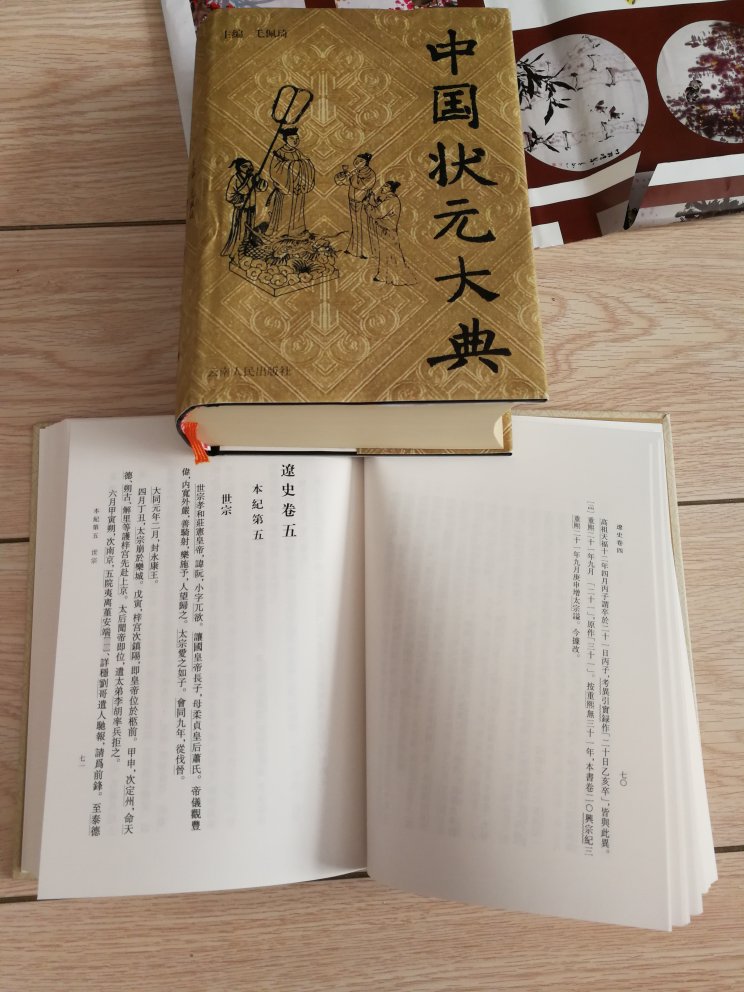 主编 毛佩琦
中国状元大典
云南人民出版社
遼史卷四
高祖天福十二年四月丙子謂卒於二十一日丙子,考異引實錄作「二十日乙亥卒」,皆與此異。
重熙二十一年九月 「二十一」,原作「三十一」。按重熙無三十一年,本書卷二〇興宗紀三
重熙二十一年九月庚申增太宗諡。今據改。
七〇
遼史卷五
本紀第五
世宗
世宗孝和莊憲皇帝,諱阮,小字兀欲。讓國皇帝長子,母柔貞皇后蕭氏。帝儀觀豐
偉,內寬外嚴,善騎射,樂施予,人望歸之。太宗愛之如子。會同九年,從伐晉。
大同元年二月,封永康王。
四月丁丑,太宗崩於欒城。戊寅,梓宮次鎮陽,即皇帝位於柩前。甲申,次定州,命天
德、朔古、解里等護梓宮先赴上京。太后聞帝即位,遣太弟李胡率兵拒之。
六月甲寅朔,次南京,五院夷离堇安端〔一〕、詳穩劉哥遣人馳報,請爲前鋒。至泰德
本紀第五 世宗
七一